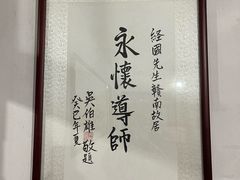 经國先生贛南故居
永懷導師
吳伯雄敬題
癸巳年夏